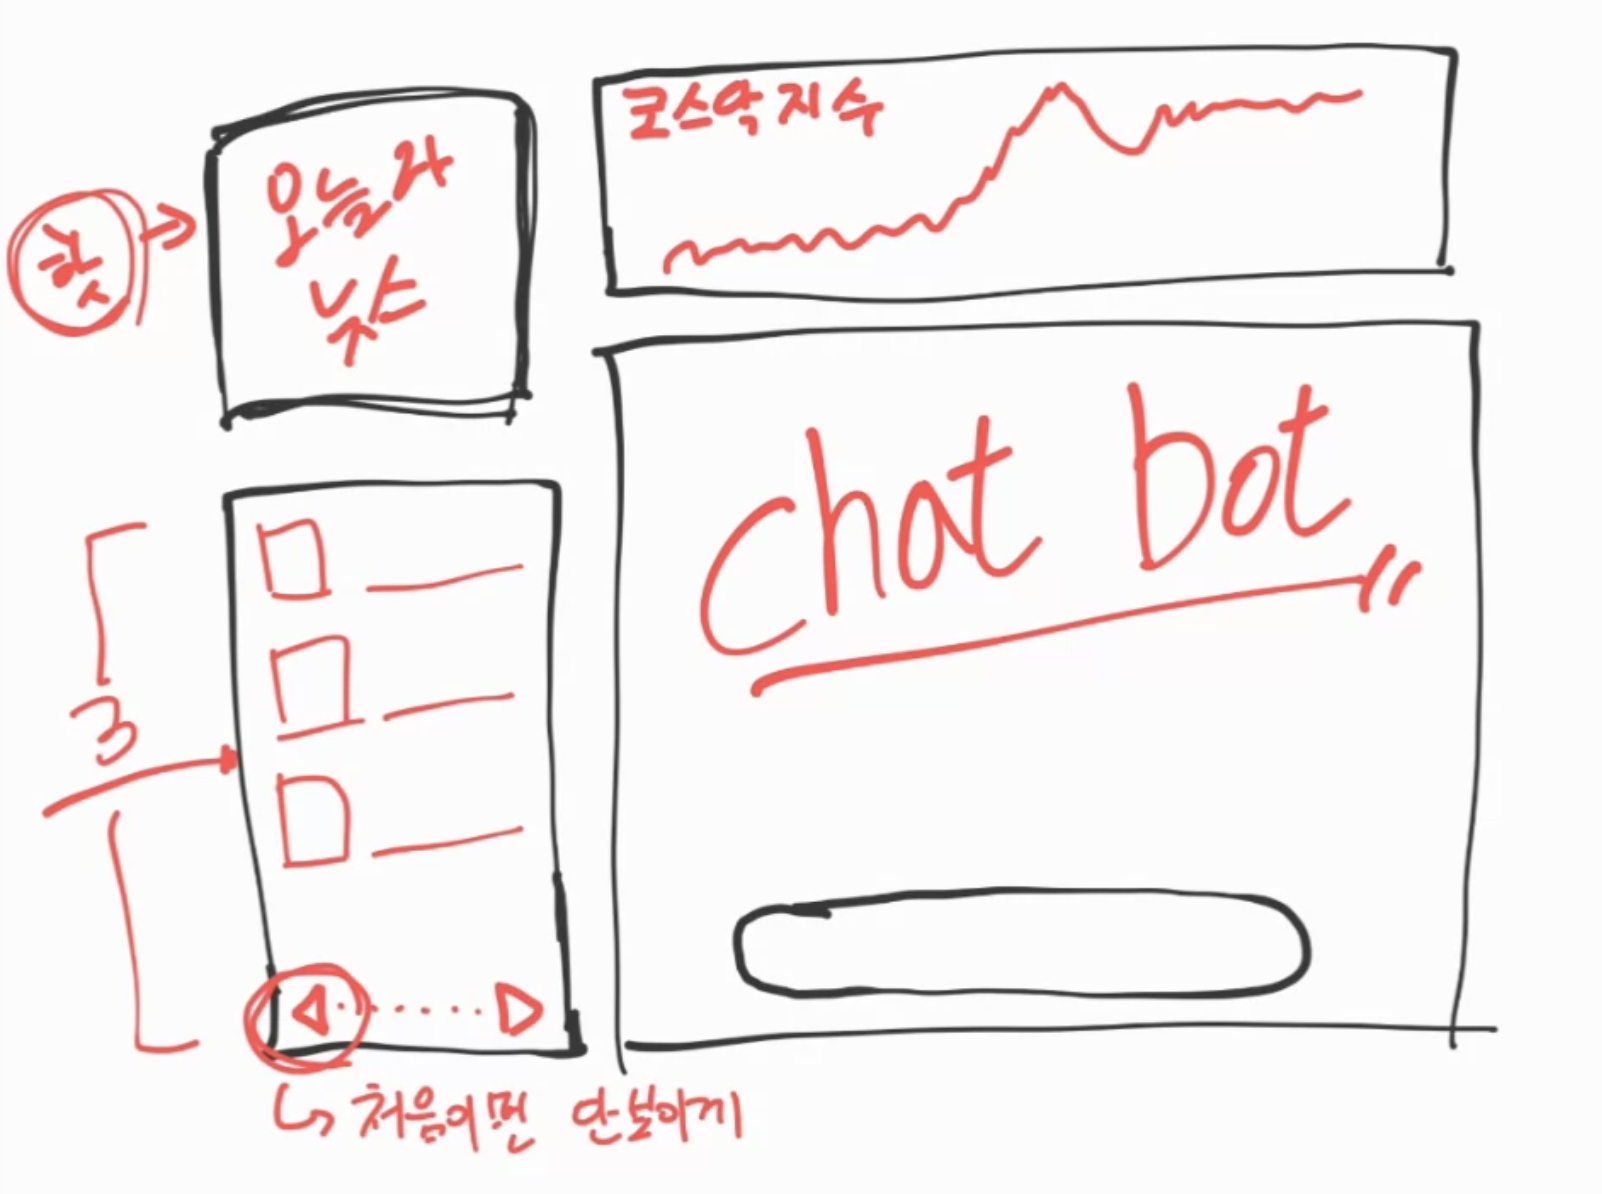 핫
뉴스
코스닥 지수
Chat bot
3
처음이면 안보이기